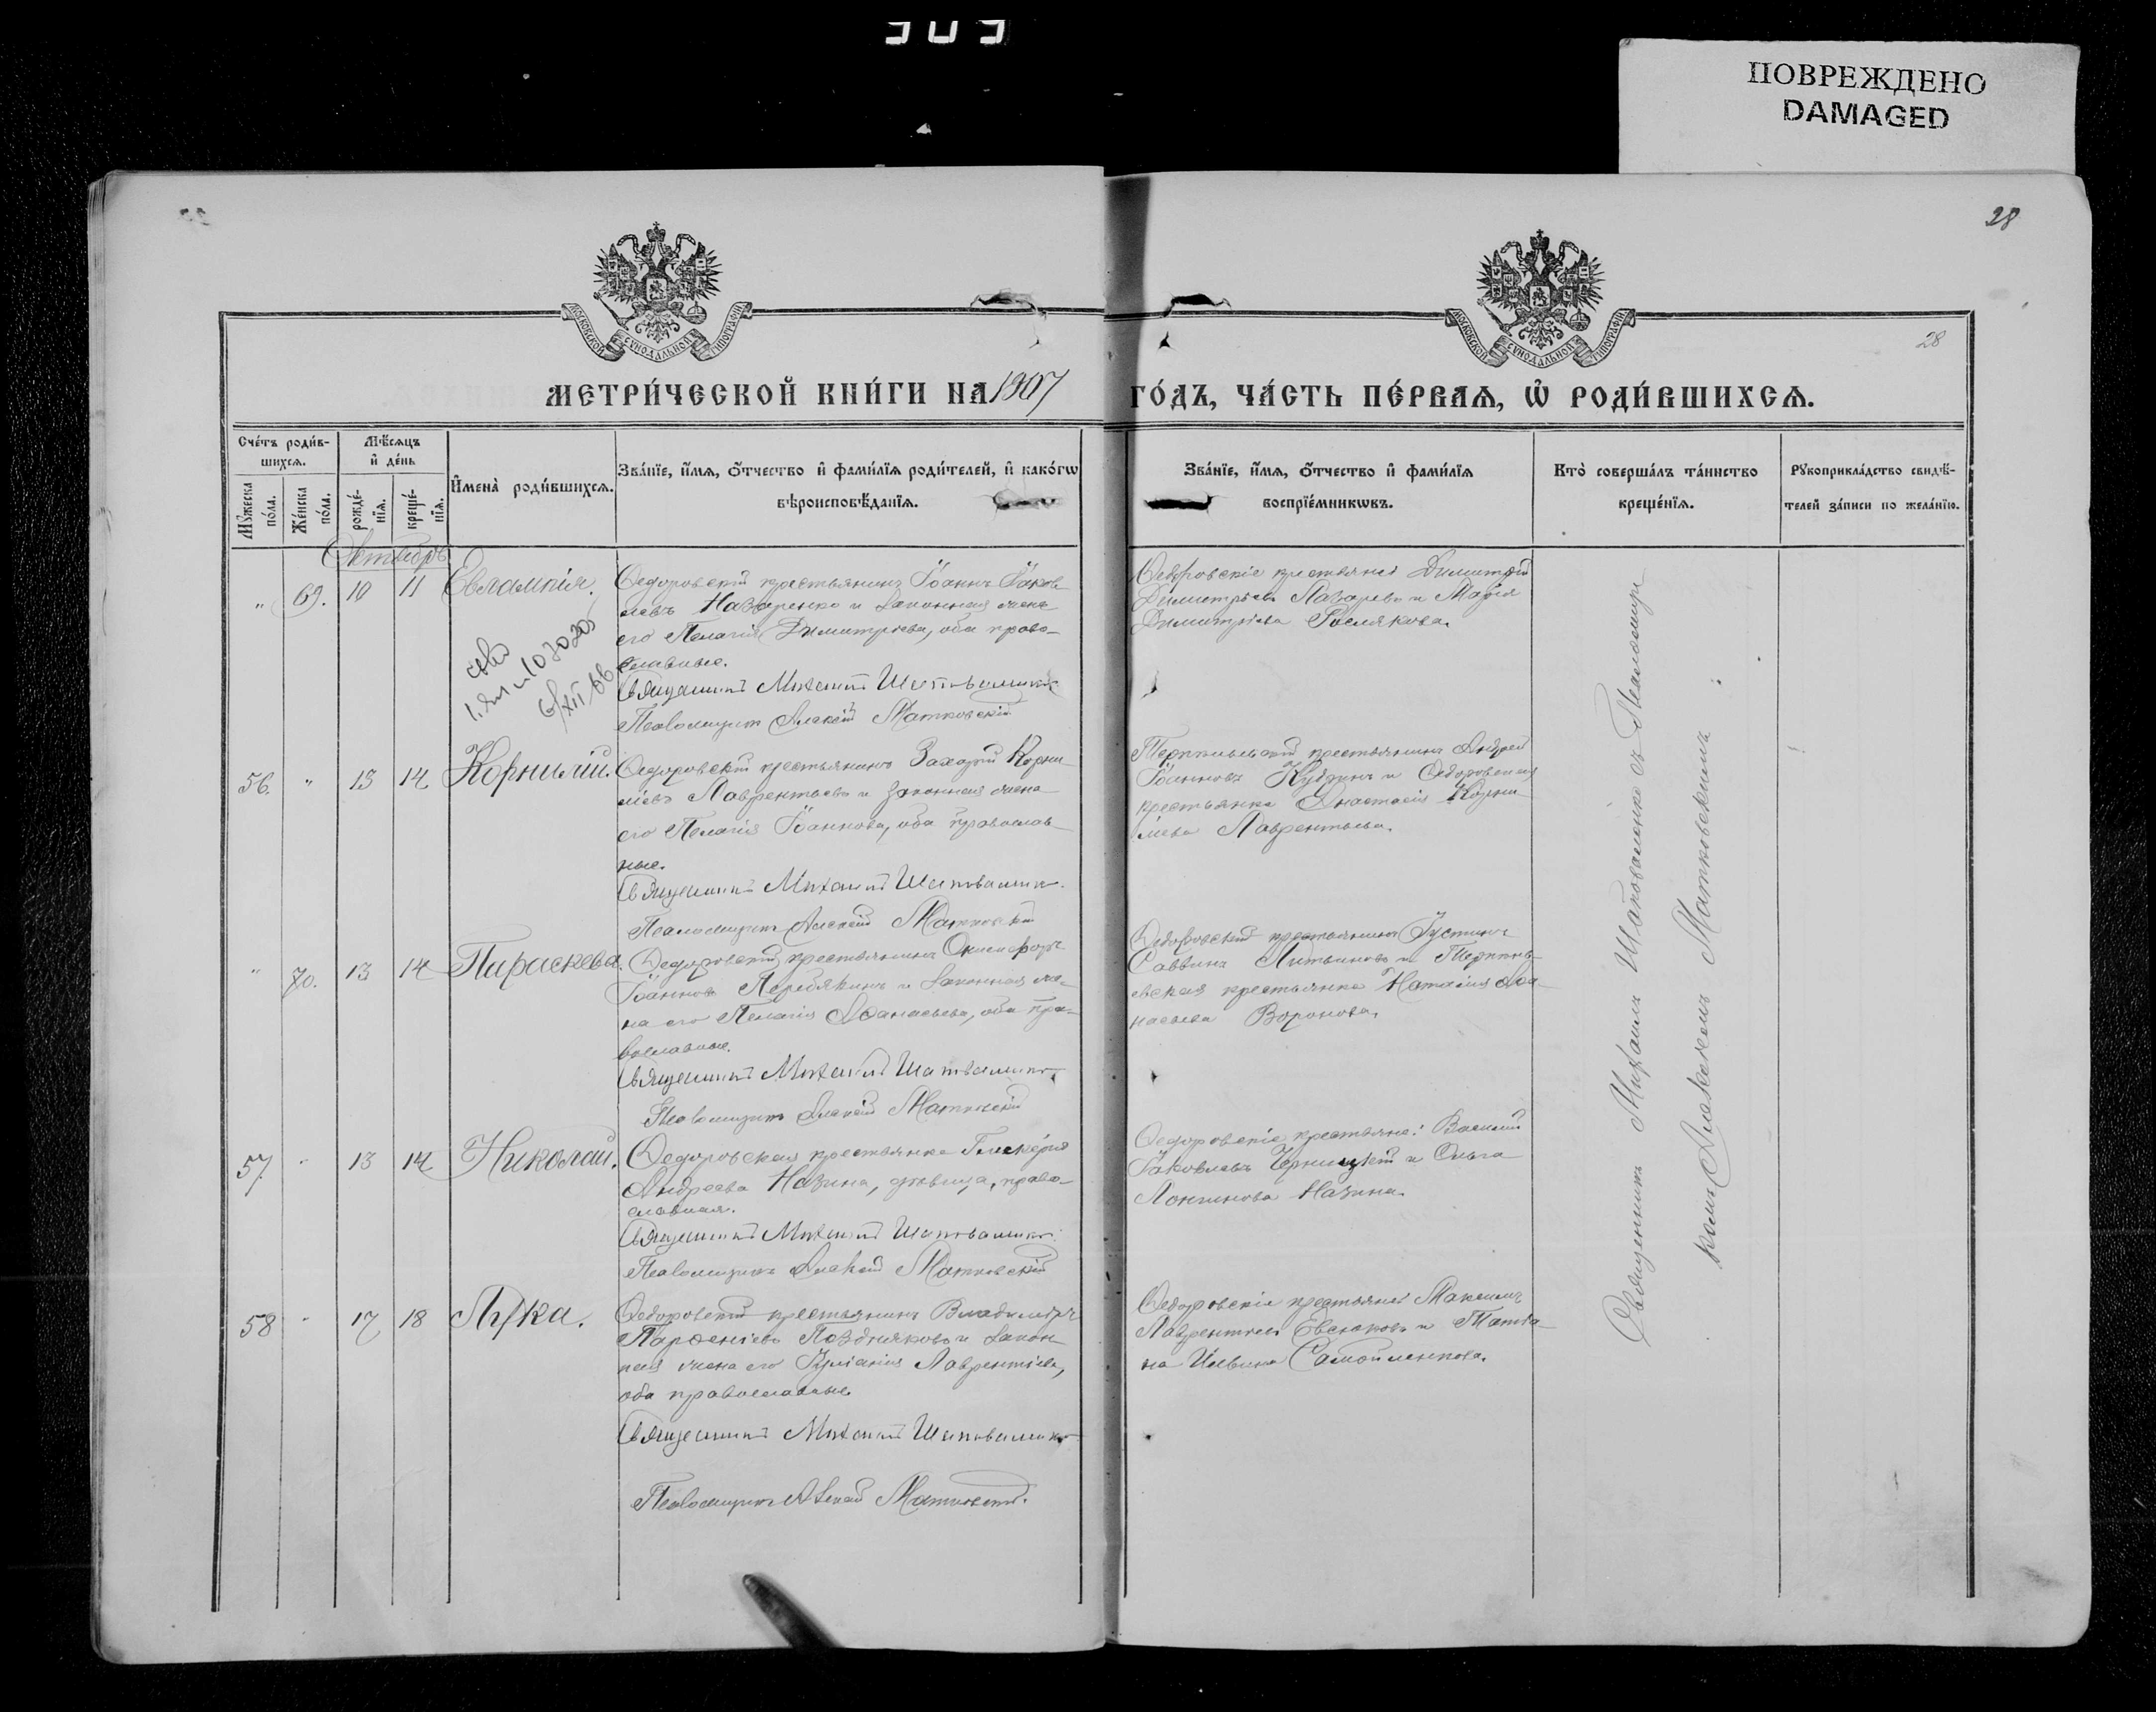 303
ПОВРЕЖДЕНО
DAMAGED
28
28
МОСКОВСКОЙ СУНОДАЛЬНОЙ ТИПОГРАФІИ
МОСКОВСКОЙ СУНОДАЛЬНОЙ ТИПОГРАФІИ
МЕТРИ́ЧЕСКОЙ КНИ́ГИ НА 1907
ГО́ДЪ, ЧА́СТЬ ПЕ́РВАѦ, Ѡ РОДИ́ВШИХСѦ.
Сче́тъ роди́в-
шихсѧ.
Мꙋжеска по́ла.
Же́нска по́ла.
Мѣ́сѧцъ
и҆ де́нь
рожде́-
нїѧ.
креще́-
нїѧ.
И҆мена̀ роди́вшихсѧ.
Зва́нїе, и҆́мѧ, ѻ҆́тчество и҆ фами́лїѧ роди́телей, и҆ како́гѡ
вѣроисповѣ́данїѧ.
Зва́нїе, и҆́мѧ, ѻ҆́тчество и҆ фами́лїѧ
воспрїе́мникѡвъ.
Кто̀ соверша́лъ та́инство
креще́нїѧ.
Рꙋкоприкла́дство свидѣ́-
телей за́писи по жела́нїю.
Октябрь
" 69. 10 11 Евлампія.
Ѳедоровскій крестьянинъ Іоаннъ Іаков
левъ Назаренко и законная жена
его Пелагія Димитріева, оба право-
славные.
Священникъ Михаилъ Шаповаленко
Псаломщикъ Алексій Матковскій
Ѳедоровскіе крестьяне: Димитрій
Димитріевъ Лазаревъ и Марія
Димитріева Рослякова.
56. " 13 14 Корнилій.
Ѳедоровскій крестьянинъ Захарій Корни-
ліевъ Лаврентьевъ и законная жена
его Пелагія Іоаннова, оба православ-
ные.
Священникъ Михаилъ Шаповаленко.
Псаломщикъ Алексій Матковскій
крестьянинъ Андрей
Іоанновъ и Ѳедоровская
крестьянка Анастасія Корни-
ліева Лаврентьева.
" 70. 13 14 Параскева.
Ѳедоровскій крестьянинъ Онисифоръ
Іоанновъ и законная же-
на его Пелагія Аѳанасьева, оба пра-
вославные.
Священникъ Михаилъ Шаповаленко
Псаломщикъ Алексій Матковскій
Ѳедоровскій крестьянинъ Іустинъ
Саввинъ Литвиновъ и
крестьянка Наталія Аѳа-
насьева Воронова.
57. " 13 14 Николай.
Ѳедоровская крестьянка Гликерія
Андреева Назина, дѣвица, право-
славная.
Священникъ Михаилъ Шаповаленко
Псаломщикъ Алексій Матковскій
Ѳедоровскіе крестьяне: Василій
Іаковлевъ Черницкій и Ольга
Лонгинова Назина.
58 " 17 18 Лука.
Ѳедоровскій крестьянинъ Владиміръ
Парѳеніевъ Поздняковъ и закон
ная жена его Іуліанія Лаврентіева,
оба православные.
Священникъ Михаилъ Шаповаленко
Псаломщикъ Алексій Матковскій.
Ѳедоровскіе крестьяне: Максимъ
Лаврентіевъ Евсюковъ и Татіа-
на Ильина Самойленкова.
Священникъ Михаилъ Шаповаленко съ Псаломщи
комъ Алексіемъ Матковскимъ